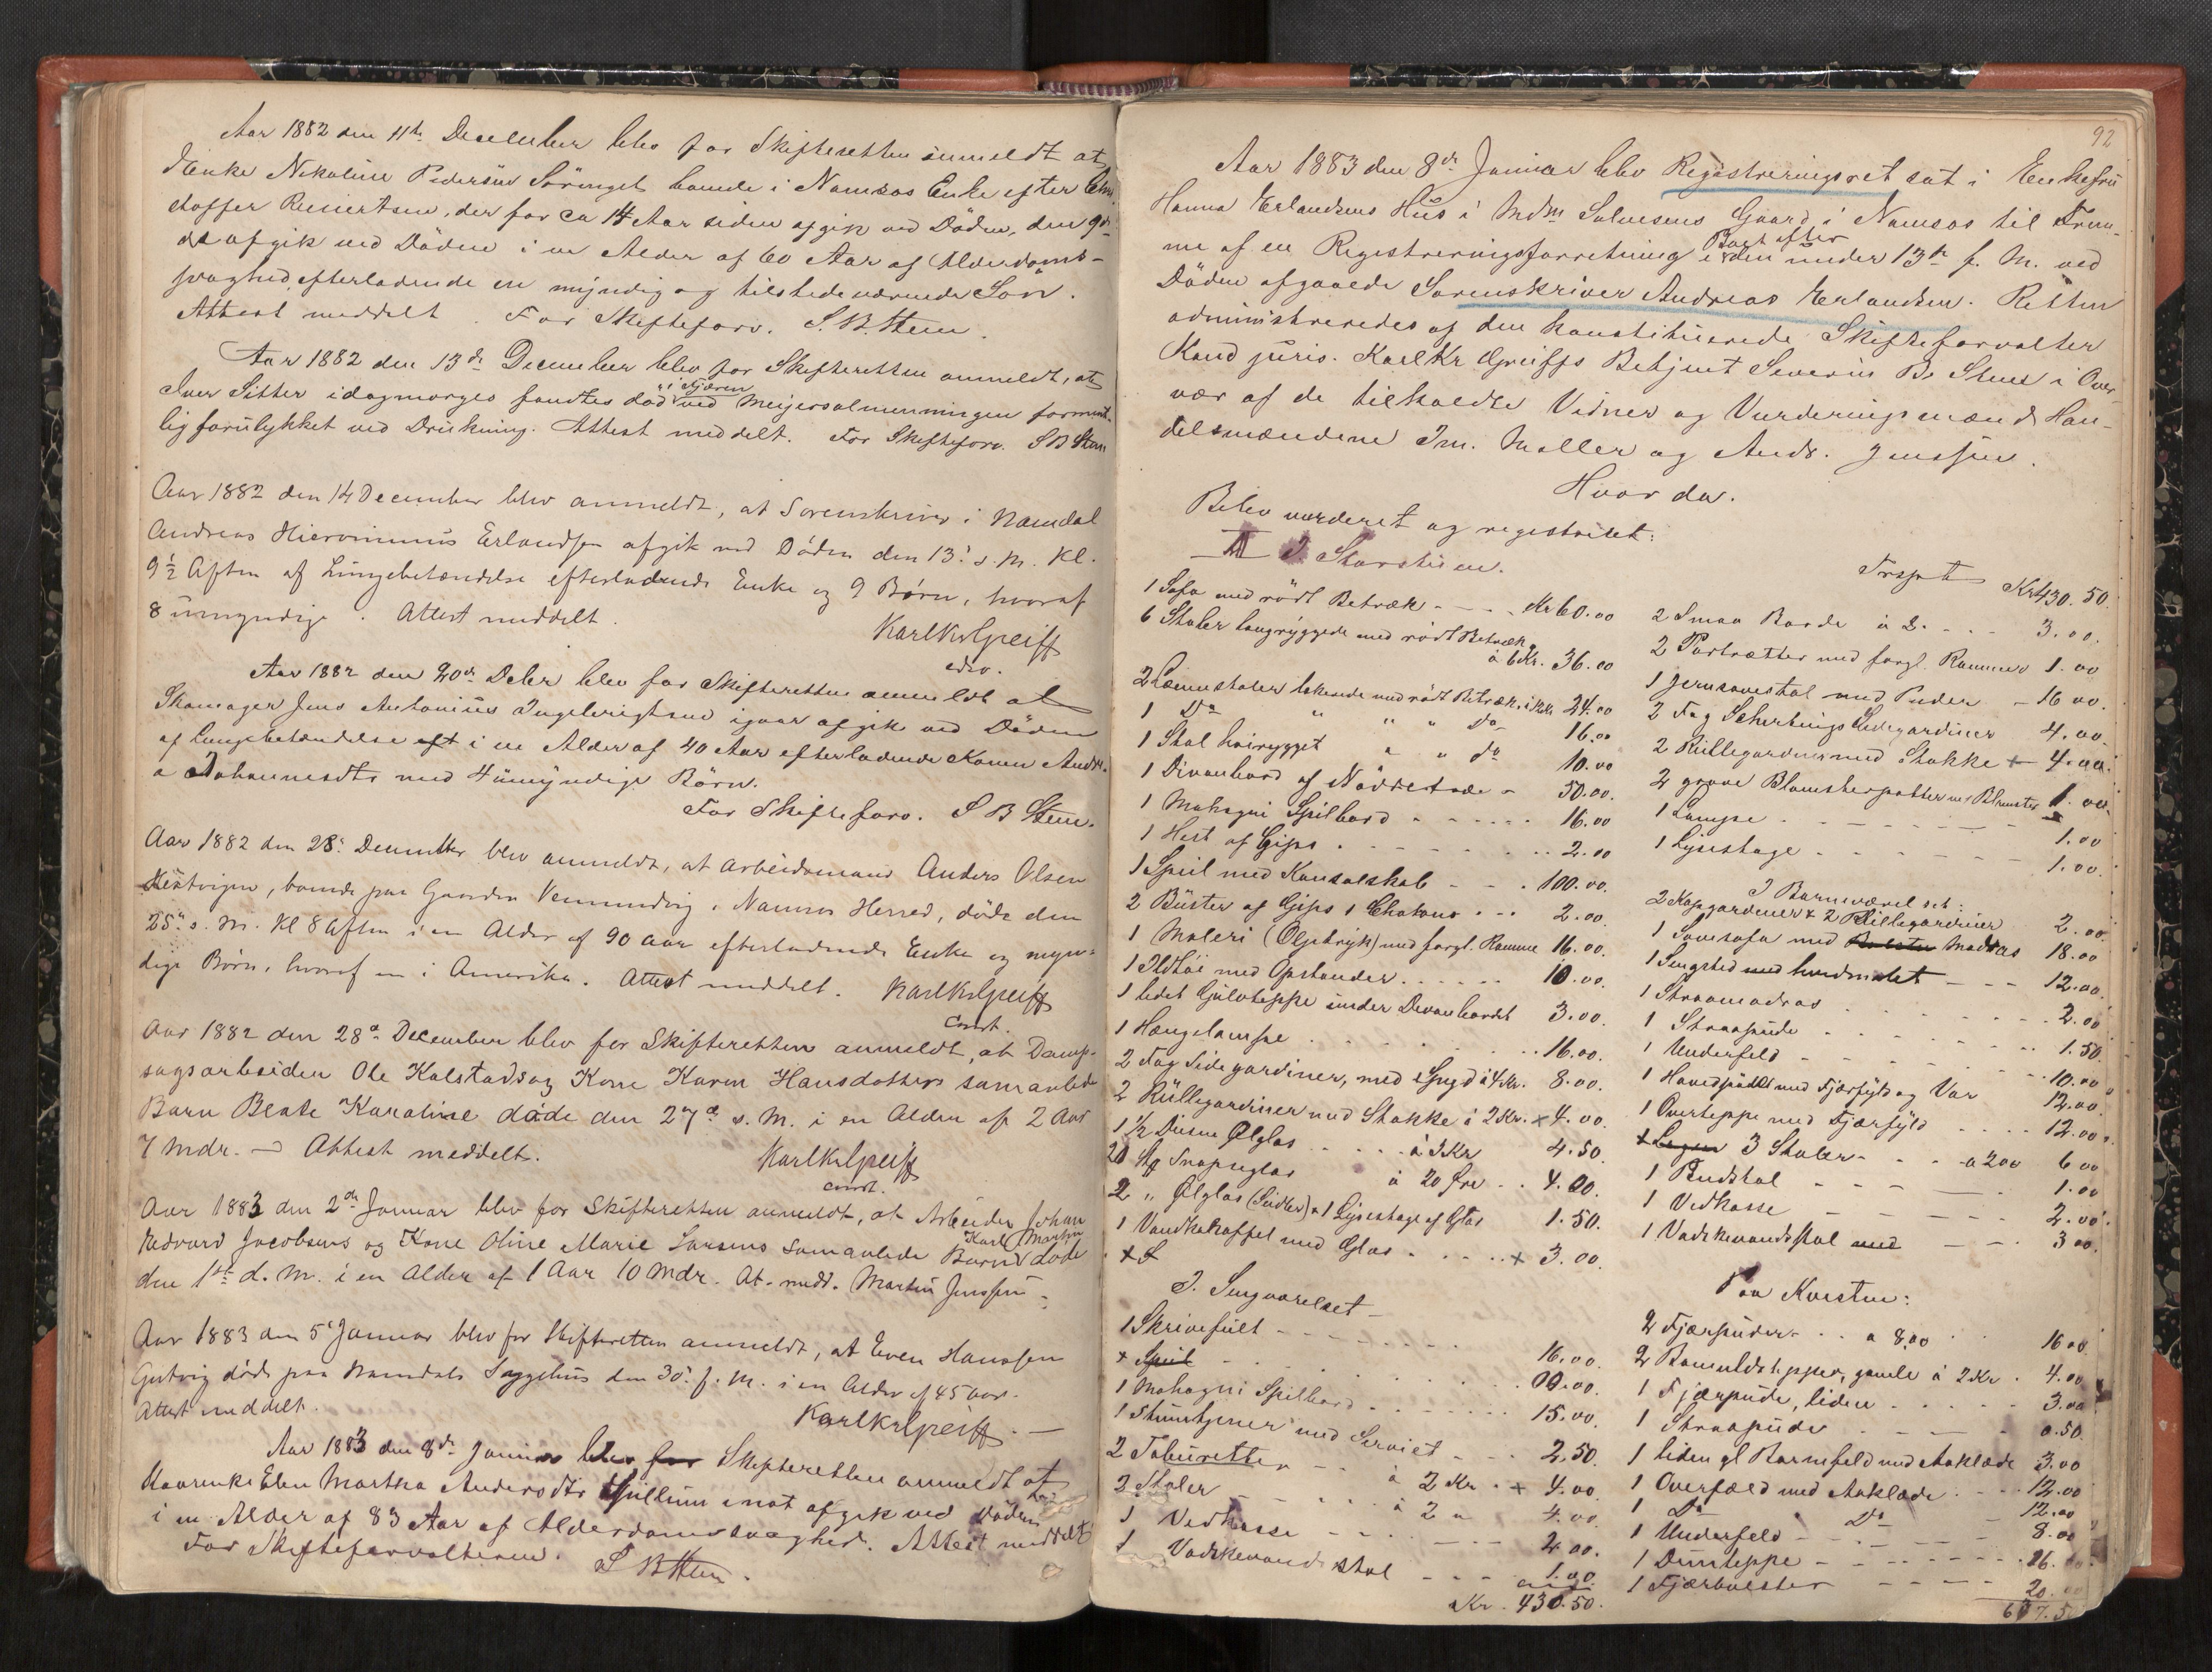 Aar 1882 den 11te December blev for Skifteretten anmeldt at
Enke Nikoline Pedersen Sörenget boende i Namsos Enke efter Chri-
stoffer Reinertsen, der for ca 14 Aar siden afgik ved Döden, den 9de
ds afgik ved Döden i en Alder af 60 Aar af Alderdoms-
svaghed efterladende en myndig og tilstedeværende Sön.
Attest meddelt. For Skifteforv. S. B. Steen.
Aar 1882 den 13de December blev for Skifteretten anmeldt, at
Iver Sitter idagmorges fandtes död i Fjæren ved Meijersalmenningen forment-
lig forulykket ved Drukning. Attest meddelt. For Skifteforv. S B Steen
Aar 1882 den 14 December blev anmeldt, at Sorenskriver i Namdal
Andreas Hieronimus Erlandsen afgik ved Döden den 13. s. M. Kl.
9½ Aften af Lungebetændelse efterladende Enke og 9 Börn, hvoraf
8 umyndige. Attest meddelt.
Karl Kr. Greiff
edsv.
Aar 1882 den 20de Decbr blev for Skifteretten anmeldt at
Skomager Jens Antonius Ingebrigtsen igaar afgik ved Döden
af Lungebetændelse eft i en Alder af 40 Aar efterladende Konen Andre-
a Johannesdtr med 4 umyndige Börn.
For Skifteforv. S B Steen.
Aar 1882 den 28. December blev anmeldt, at Arbeidsmand Anders Olsen
Hestvigen, boende paa Gaarden Vemundvig i Namsos Herred, döde den
25. s. M. Kl 8 Aften i en Alder af 90 Aar efterladende Enke og myn-
dige Börn, hvoraf en i Amerika. Attest meddelt. Karl Kr. Greiff
const.
Aar 1882 den 28de December blev for Skifteretten anmeldt, at Damp-
sagsarbeider Ole Kolstads og Kone Karen Hansdatters samavlede
Barn Beate Karoline döde den 27de s. M. i en Alder af 2 Aar
7 Mdr. — Attest meddelt.
Karl Kr. Greiff
const.
Aar 1883 den 2den Januar blev for Skifteretten anmeldt, at Arbeider Johan
Nedvard Jacobsens og Kone Oline Marie Larsens samavlede Barn Karl Martin döde
den 1ste d. M. i en Alder af 1 Aar 10 Mdr. At. medd. Martin Jenssen
Aar 1883 den 5. Januar blev for Skifteretten anmeldt, at Even Hanssen
Gutvig döde paa Namdals Sygehus den 30. f. M. i en Alder af 45 Aar.
Attest meddelt.
Karl Kr. Greiff. —
Aar 1883 den 8de Januar blev for Skifteretten anmeldt at
Kaarenke Elen Martha Andersdtr Spillum inat afgik ved Döden
i en Alder af 83 Aar af Alderdomssvaghed. Attest meddelt
For Skifteforvalteren. S B Steen.
92
Aar 1883 den 8de Januar blev Registreringsret sat i Enkefru
Hanna Erlandsens Hus i Mdm Salvesens Gaard i Namsos til Frem-
me af en Registreringsforretning i Boet efter den under 13de f. M. ved
Döden afgaaede Sorenskriver Andreas Erlandsen. Retten
administreredes af den konstituerede Skifteforvalter
Kand juris. Karl Kr Greiffs Betjent Severin B. Steen i Over
vær af de tilkaldte Vidner og Vurderingsmænd Han-
delsmændene Im. Moller og Andr. Jenssen.
Hvorda.
Blev vurderet og registreret:
I Storstuen.
1 Sofa med rödt Betræk - - - Kr 60.00
6 Stoler langryggede med rödt Betræk
à 6 Kr. 36.00
2 Lænestoler lakerede med rödt Betræk à 12 Kr 24.00
1 Do " " " Do 16.00
1 Stol höirygget " " do 10.00
1 Divanbord af Nöddetræe - 50.00.
1 Mahogni Spilbord - - - - 16.00
1 Hest af Gips - - - - 2.00
1 Speil med Konsolskab - - - 100.00.
2 Büster af Gips 1 Chatoul - - 2.00.
1 Maleri (Oljetryk) med forgl. Ramme 16.00.
1 Ildtöi med Opstander - - - 10.00.
1 lidet Gulvteppe under Devanbordet 3.00.
1 Hængelampe - - - 16.00.
2 Fag Sidegardiner, med Gugd à 4 Kr. 8.00.
2 Rüllegardiner med Stokke à 2 Kr. + 4.00.
1 ½ Dusin Ølglas - - - à 3 Kr 4.50.
20 Stk Snapseglas à 20 Øre - - 4.00.
2 " Ølglas (Seidler) + 1 Lysestage af Glas 1.50.
1 Vandkaraffel med Glas - - - + 3.00.
I. Sengværelset
1 Skrivepult - - - 16.00.
+ Speil - - - 00.00.
1 Mahogni Spilbord - - - 15.00.
1 Stumtjener med Serviet - - - 2.50.
2 Taburetter - - à 2 Kr. + 4.00
2 Stoler - - à 2 " 4.00
1 Vedkasse - - - 2.00.
1 Vadskevandsstol - - - 1.00
Kr. 430.50.
Trspt Kr 430.50.
2 Smaa Borde à 2. - - - 3.00.
2 Portrætter med forgl. Rammer 1.00
1 Jernsovestol med Puder - 16.00.
2 Fag Schertings Sidegardiner 4.00.
2 Rüllegardiner med Stokke + 4.00.
2 graae Blomsterpotter m/ Blomster 1.00.
1 Lampe - - - 1.00
1 Lysestage - - - 1.00.
I Barneværelset:
2 Kapgardiner & 2 Rüllegardiner 2.00.
1 Sovesofa med Bolster Madras 18.00
1 Sengsted med hvidmalet - - - 12.00.
1 Straamadras - - - 2.00
1 Straapude - - - 1.50
1 Underfeld - - - 10.00
1 Hovedpude med Fjærfyld og Var 12.00
1 Overteppe med Fjærfyld - - - 12.00.
+ Lagen 3 Stoler - - - à 200 6.00
1 Budstol - - - 1.00
1 Vedkasse - - - 2.00.
1 Vadskevandsstol med - - 3.00.
Paa Kvisten:
2 Fjærpuder - - à 8.00 16.00
2 Bomuldstepper, gamle à 2 Kr. 4.00
1 Fjærpude, liden - - - 3.00
1 Straapude - - - 0.50
1 liden gl Barnefeld med Aaklæde 3.00
1 Overfæld med Aaklæde - - - 12.00
1 Do Do - 12.00
1 Underfeld - - - 8.00
1 Dunteppe - - - 26.
1 Fjærbolster - - - 20.00